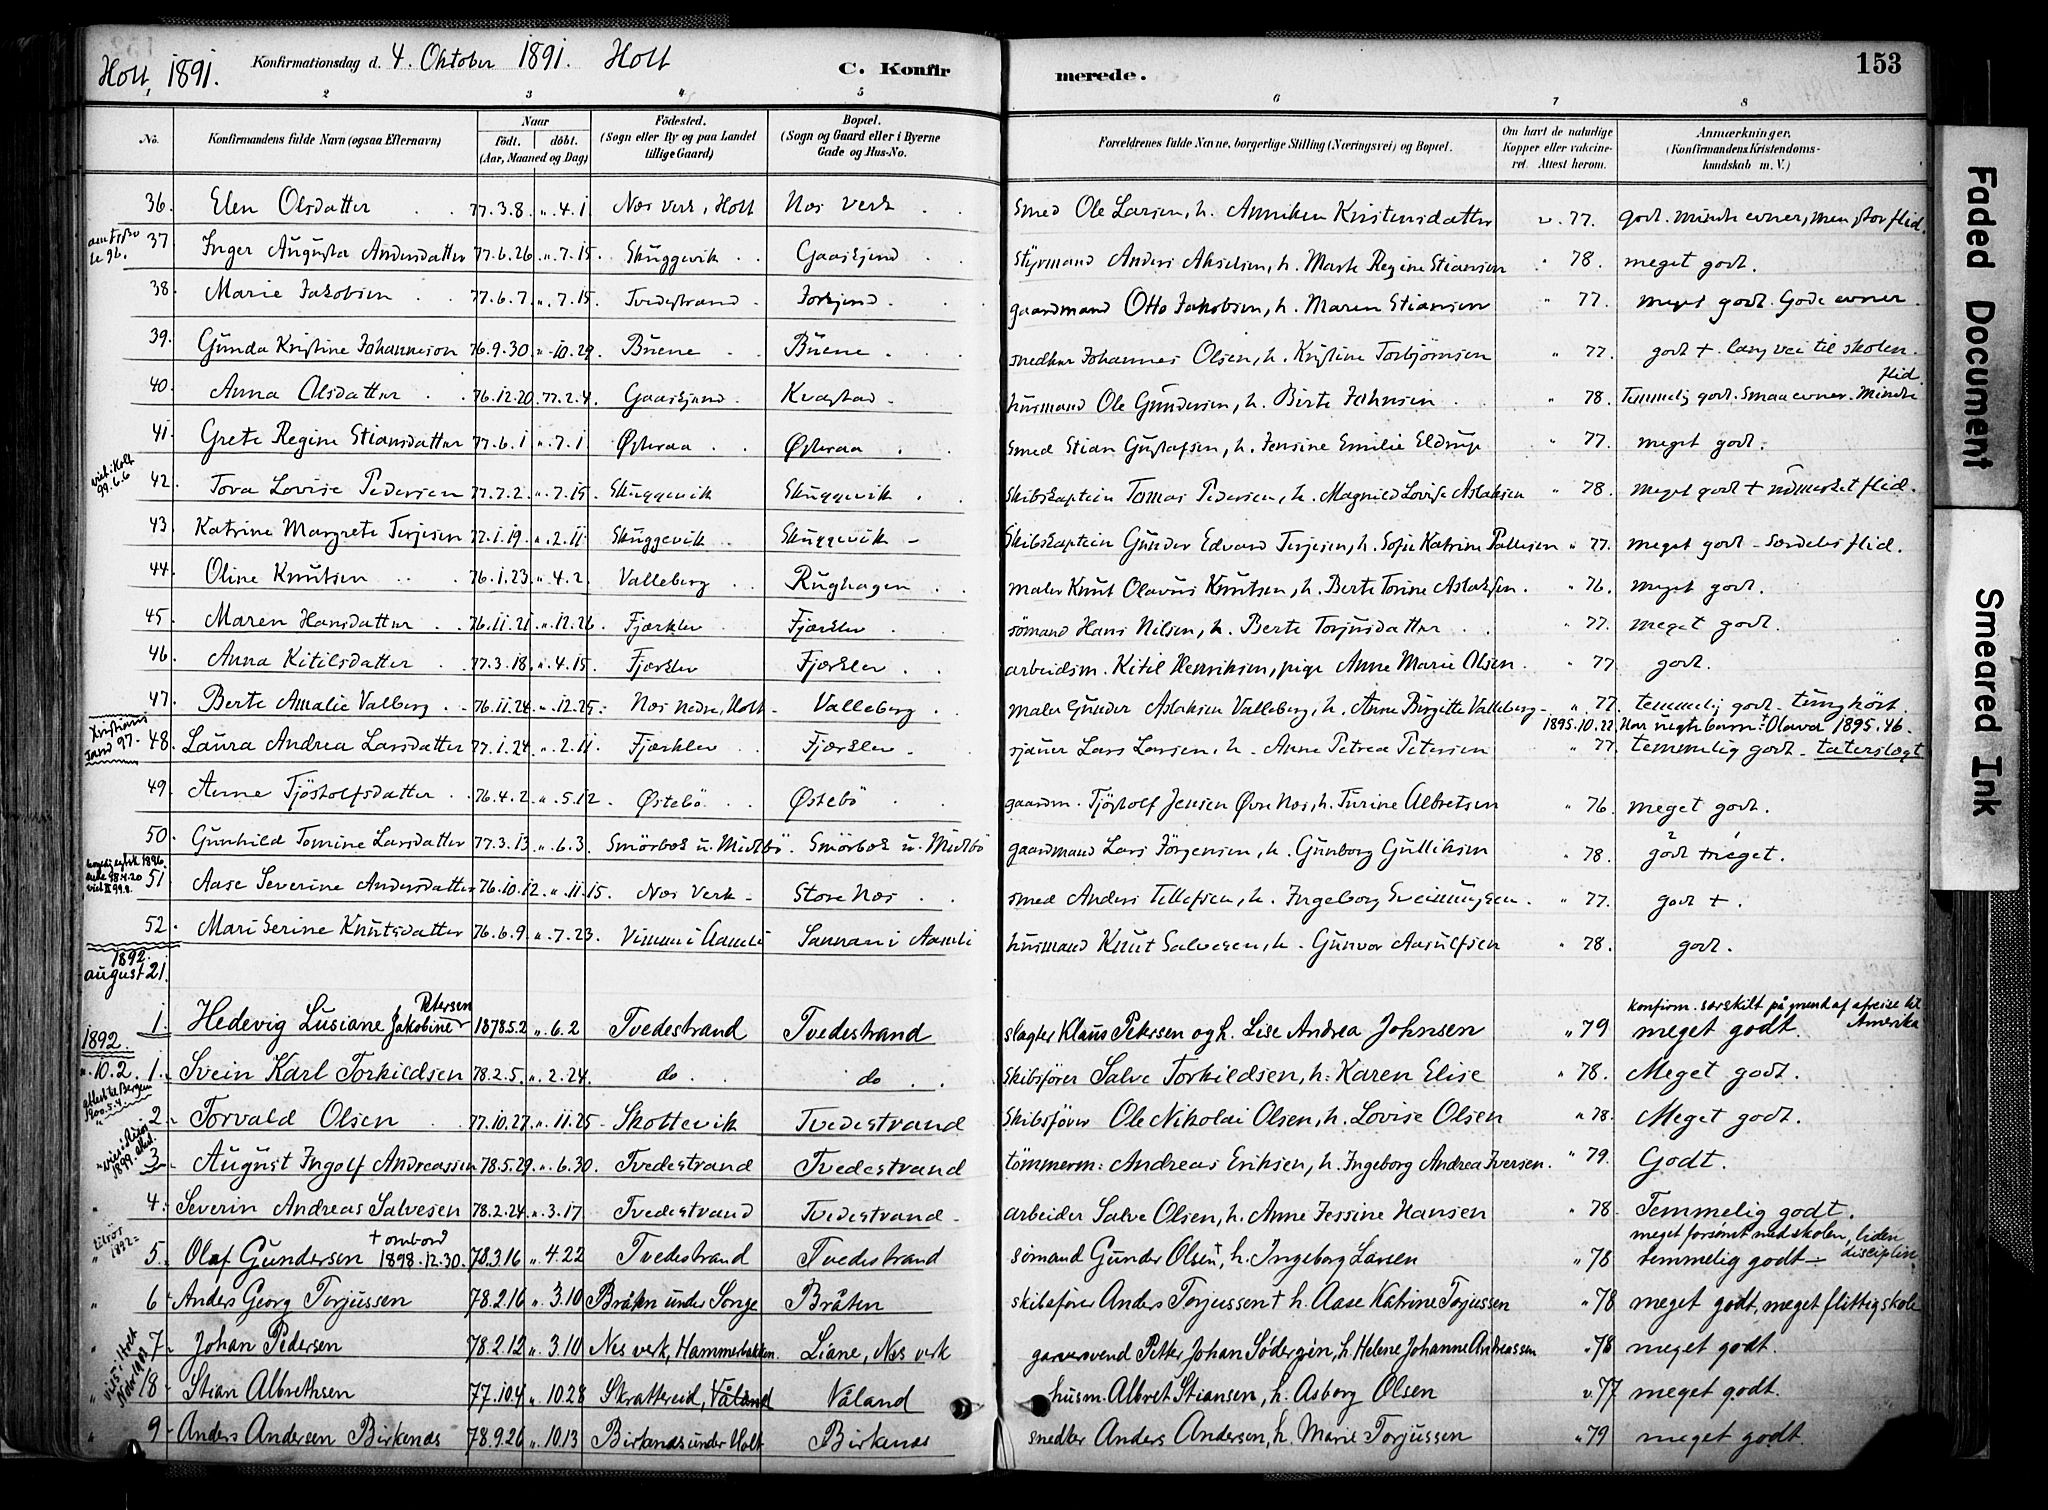 Holt, 1891. Konfirmationsdag d. 4. Oktober 1891. Holt C. Konfir merede. 153
1 2 3 4 5 6 7 8
No. Konfirmandens fulde Navn (ogsaa Efternavn) Naar født. døbt. (Aar, Maaned og Dag) Fødested. (Sogn eller By og paa Landet tillige Gaard) Bopæl. (Sogn og Gaard eller i Byerne Gade og Hus-No. Forældrenes fulde Navne, borgerlige Stilling (Næringsvei) og Bopæl. Om havt de naturlige Kopper eller vakcineret. Attest herom. Anmærkninger. (Konfirmandens Kristendomskundskab m. V.)
36. Elen Olsdatter 77.3.8. „ 4.1. Nes verk, Holt Nes verk Smed Ole Larsen, h. Anniken Kristensdatter v. 77. godt. mindre evner, men stor flid.
37 Inger Augusta Andersdatter 77.6.26 „ 7.15. Skuggevik Gaaskjend Styrmand Anders Akselsen, h. Marte Regine Stiansen „ 78. meget godt.
38. Marie Jakobsen 77.6.7. „ 7.15. Tvedestrand gaardmand Otto Jakobsen, h. Maren Stiansen „ 77. meget godt. Gode evner.
39. Gunda Kristine Johannesen 76.9.30 „ 10.29. Buene Buene snedker Johannes Olsen, h. Kristine Torbjørnsen „ 77. godt +. lang vei til skolen.
40. Anna Olsdatter 76.12.20. 77.2.4. Gaaskjend Kvastad husmand Ole Gundersen, h. Birte Johnsen „ 78. Temmelig godt. Smaa evner. Mindre flid.
41. Grete Regine Stiansdatter 77.6.1 „ 7.1 Østeraa Østeraa Smed Stian Gustafsen, h. Jensine Emilie Eldrup „ 77. meget godt.
viet i Holt 99.6.6 42. Tova Lovise Pedersen 77.7.2. „ 7.15. Skuggevik Skuggevik Skibskaptein Tomas Pedersen, h. Magnild Lovise Aslaksen „ 78. meget godt + udmerket flid.
43 Katrine Margrete Terjesen 77.1.19. „ 2.11 Skuggevik Skuggevik Skibskaptein Gunder Edvard Terjesen, h. Sofie Katrine Pallesen „ 77. meget godt – særdeles flid.
44. Oline Knutsen 76.1.23. „ 4.2. Valleberg Rughagen maler Knut Olavus Knutsen, h. Berte Torine Aslaksen. „ 76. meget godt.
45. Maren Hansdatter 76.11.21 „ 12.26. Fjærklev Fjærklev sømand Hans Nilsen, h. Berte Torjusdatter „ 77. meget godt.
46. Anna Kitilsdatter 77.3.18. „ 4.15. Fjærklev Fjærklev arbeidsm. Kitil Henriksen, pige Anne Marie Olsen. „ 77 godt.
47. Berte Amalie Valberg 76.11.24. „ 12.25. Nes nedre, Holt Valleberg maler Gunder Aslaksen Valleberg, h. Anne Birgitte Valleberg „ 77. temmelig godt – tunghørt.
1895.10.22. Har uegte barn: Olava 1895.46.
Kristianssand 97. 48. Laura Andrea Larsdatter 77.1.24. „ 2.11 Fjærklev Fjærklev sjauer Lars Larsen, h. Anne Petrea Petersen „ 77. temmelig godt – taterslegt
49. Anne Tjøstolfsdatter 76.4.2. „ 5.12. Østebø Østebø gaardm. Tjøstolf Jensen Øvre Nes, h. Turine Albretsen „ 76 meget godt.
50. Gunhild Tomine Larsdatter 77.3.13. „ 6.3. Smørbek u. Midtbø Smørbek u. Midtbø gaardmand Lars Jørgensen, h. Gunborg Gulliksen „ 78. godt meget.
51 Aase Severine Andersdatter 76.10.12. „ 11.15. Nes verk Store Nes smed Anders Tellefsen, h. Ingeborg Sveinungsen „ 77. godt +.
52. Mari Serine Knutsdatter 76.6.9. „ 7.23. Vimme i Aamli Sannan i Aamli husmand Knut Salvesen, h. Gunvor Aasulfsen „ 78. godt.
1892. august 21.
konfirm. særskilt på grund af afreise til Amerika
1. Hedevig Lusiane Jakobine Petersen 1878.5.2 „ 6.2 Tvedestrand Tvedestrand slagter Klaus Petersen og h. Lise Andrea Johnsen „ 79 meget godt.
1892.
„ 10.2. 1. Svein Karl Torkildsen 78.2.5. „ 2.24. do. do. Skibsfører Salve Torkildsen, h. Karen Elise „ 78. Meget godt.
attest til Bergen 1900.5.4. 2. Torvald Olsen 77.10.27. „ 11.25. Skottevik Tvedestrand Skibsfører Ole Nikolai Olsen, h. Lovise Olsen „ 78. Meget godt.
3. August Ingolf Andreassen 78.5.29. „ 6.30. Tvedestrand Tvedestrand tømmerm: Andreas Eriksen, h. Ingeborg Andrea Iversen. „ 79. Godt.
„ 4. Severin Andreas Salvesen 78.2.24. „ 3.17. Tvedestrand Tvedestrand arbeider Salve Olsen, h. Anne Jessine Hansen „ 78. Temmelig godt.
meget forsømt med skolen, liden disciplin.
tilsjøs 1892 „ 5. Olaf Gundersen + ombord 1898.12.30. 78.3.16 „ 4.22 Tvedestrand Tvedestrand sømand Gunder Olsen +, h. Ingeborg Larsen „ 78 temmelig godt –
„ 6 Anders Georg Torjussen 78.2.16 „ 3.10 Bråten under Songe Bråten skibsfører Anders Torjussen + h. Aase Katrine Torjussen „ 78 meget godt, meget flittig skole
„ 7. Johan Pedersen 78.2.12 „ 3.10 Nes verk, Hammerbakken. Liane, Nes verk garversvend Petter Johan Södergren, h. Helene Johanne Andreassen „ 78 meget godt.
„ 8 Stian Albrethsen 77.10.4 „ 10.28 Skrattereid, Våland Våland husm. Albret Stiansen, h. Asborg Olsen v. 77 meget godt.
„ 9. Anders Andersen Birkenes 78.9.26 „ 10.13 Birkenes under Holt Birkenes snedker Anders Andersen, h. Marie Torjussen „ 79 meget godt.
Faded Document
Smeared Ink